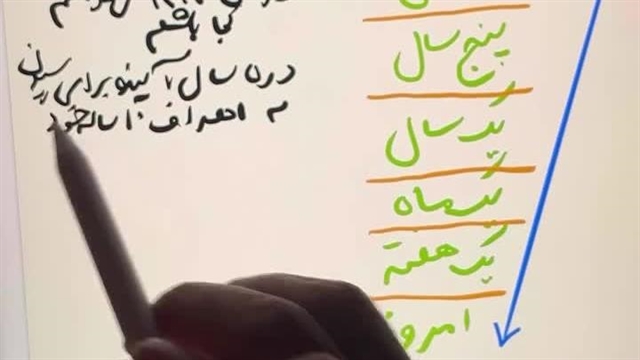 کجا باشم
در ۵ سال آینده برای رسیدن
به اهداف ۱۰ ساله خود
پنج سال
یک سال
یک ماه
یک هفته
امروز